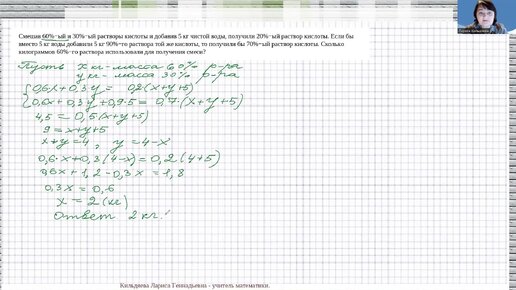 Смешав 60%−ый и 30%−ый растворы кислоты и добавив 5 кг чистой воды, получили 20%−ый раствор кислоты. Если бы
вместо 5 кг воды добавили 5 кг 90%−го раствора той же кислоты, то получили бы 70%−ый раствор кислоты. Сколько
килограммов 60%−го раствора использовали для получения смеси?
Пусть x кг - масса 60% р-ра
y кг - масса 30% р-ра
0,6x + 0,3y = 0,2(x+y+5)
0,6x + 0,3y + 0,9·5 = 0,7·(x+y+5)
4,5 = 0,5(x+y+5)
9 = x+y+5
x+y=4, y=4-x
0,6·x+0,3(4-x)=0,2(4+5)
0,6x+1,2-0,3x=1,8
0,3x=0,6
x=2(кг)
Ответ 2 кг.
Кильдяева Лариса Геннадьевна - учитель математики.